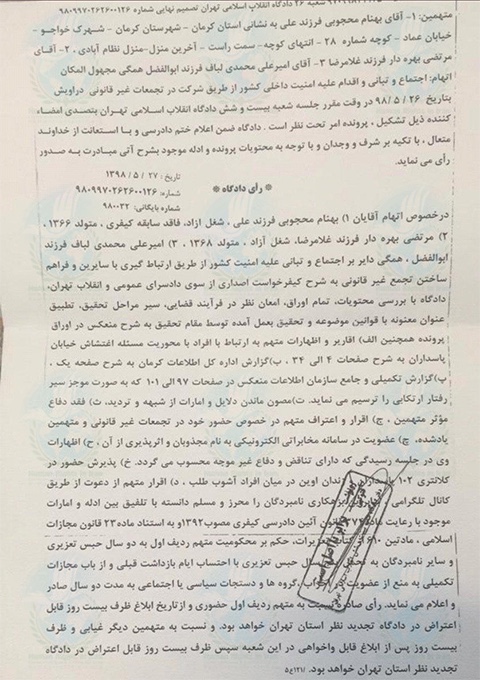 شعبه ۲۶ دادگاه انقلاب اسلامی تهران تصمیم نهایی شماره ۹۸۰۹۹۷۰۲۶۲۶۰۰۱۲۶
متهمین: ۱- آقای بهنام محجوبی فرزند علی به نشانی استان کرمان - شهرستان کرمان - شهرک خواجو -
خیابان عماد - کوچه شماره ۲۸ - انتهای کوچه - سمت راست - آخرین منزل-منزل نظام آبادی ، ۲- آقای
مرتضی بهره دار فرزند غلامرضا ۳- آقای امیرعلی محمدی لباف فرزند ابوالفضل همگی مجهول المکان
اتهام: اجتماع و تبانی و اقدام علیه امنیت داخلی کشور از طریق شرکت در تجمعات غیر قانونی دراویش
بتاریخ ۲۶ / ۵ / ۹۸ در وقت مقرر جلسه شعبه بیست و شش دادگاه انقلاب اسلامی تهران بتصدی امضاء
کننده ذیل تشکیل ، پرونده امر تحت نظر است . دادگاه ضمن اعلام ختم دادرسی و با استعانت از خداوند
متعال ، با تکیه بر شرف و وجدان و با توجه به محتویات پرونده و ادله موجود بشرح آتی مبادرت به صدور
رأی می نماید.
تاریخ : ۲۷ / ۵ / ۱۳۹۸
شماره: ۹۸۰۹۹۷۰۲۶۲۶۰۰۱۲۶
* رأی دادگاه *
شماره بایگانی: ۹۸۰۰۳۲
درخصوص اتهام آقایان ۱) بهنام محجوبی فرزند علی ، شغل ازاد، فاقد سابقه کیفری ، متولد ۱۳۶۶ ،
۲) مرتضی بهره دار فرزند غلامرضا، شغل آزاد ، متولد ۱۳۶۸ ، ۳) امیرعلی محمدی لباف فرزند
ابوالفضل ، همگی دایر بر اجتماع و تبانی علیه امنیت کشور از طریق ارتباط گیری با سایرین و فراهم
ساختن تجمع غیر قانونی به شرح کیفرخواست اصداری از سوی دادسرای عمومی و انقلاب تهران،
دادگاه با بررسی محتویات، تمام اوراق، امعان نظر در فرآیند قضایی، سیر مراحل تحقیق، تطبیق
عنوان معنونه با قوانین موضوعه و تحقیق بعمل آمده توسط مقام تحقیق به شرح منعکس در اوراق
پرونده همچنین الف) اقاریر و اظهارات متهم به ارتباط با افراد با محوریت مسئله اغتشاش خیابان
پاسداران به شرح صفحات ۴ الی ۳۴ ، ب)گزارش اداره کل اطلاعات کرمان به شرح صفحه یک ،
پ)گزارش تکمیلی و جامع سازمان اطلاعات منعکس در صفحات ۹۷ الی ۱۰۱ که به صورت موجز سیر
رفتار ارتکابی را ترسیم می نماید. ت)مصون ماندن دلایل و امارات از شبهه و تردید، ث) فقد دفاع
مؤثر متهمین ، ج) اقرار و اعتراف متهم در خصوص حضور خود در تجمعات غیر قانونی و متهمین
یادشده، چ) عضویت در سامانه مخابراتی الکترونیکی به نام مجذوبان و اثرپذیری از آن ، ح) اظهارات
وی در جلسه رسیدگی که دارای تناقض و دفاع غیر موجه محسوب می گردد. خ) پذیرش حضور در
کلانتری ۱۰۲ زندان اوین در میان افراد آشوب طلب ، د) اقرار متهم از دعوت از طریق
کانال تلگرامی بزهکاری نامبردگان را محرز و مسلم دانسته با تلفیق بین ادله و امارات
موجود با رعایت ماده قانون آئین دادرسی کیفری مصوب۱۳۹۲و به استناد ماده۲۳ قانون مجازات
اسلامی ، مادتین ۶۱۰ تعزیرات، حکم بر محکومیت متهم ردیف اول به دو سال حبس تعزیری
و سایر نامبردگان به تحمل سال حبس تعزیری با احتساب ایام بازداشت قبلی و از باب مجازات
تکمیلی به منع از عضویت در احزاب، گروه ها و دستجات سیاسی یا اجتماعی به مدت دو سال صادر
و اعلام می نماید. رأی صادره نسبت به متهم ردیف اول حضوری و ازتاریخ ابلاغ ظرف بیست روز قابل
اعتراض در دادگاه تجدید نظر استان تهران خواهد بود. و نسبت به متهمین دیگر غیابی و ظرف
بیست روز پس از ابلاغ قابل واخواهی در این شعبه سپس ظرف بیست روز قابل اعتراض در دادگاه
تجدید نظر استان تهران خواهد بود.